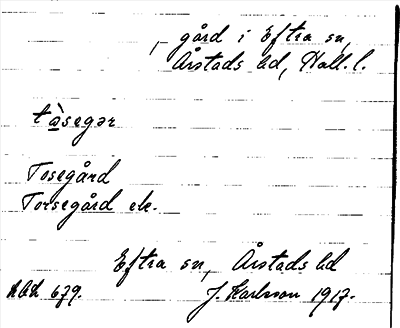 , gård i Eftra sn,
Årstads hd, Hall. l.
tå̀segər
Tosegård
Torsegård ek.
Eftra sn, Årstads hd
679.
J. Karlsson 1917.